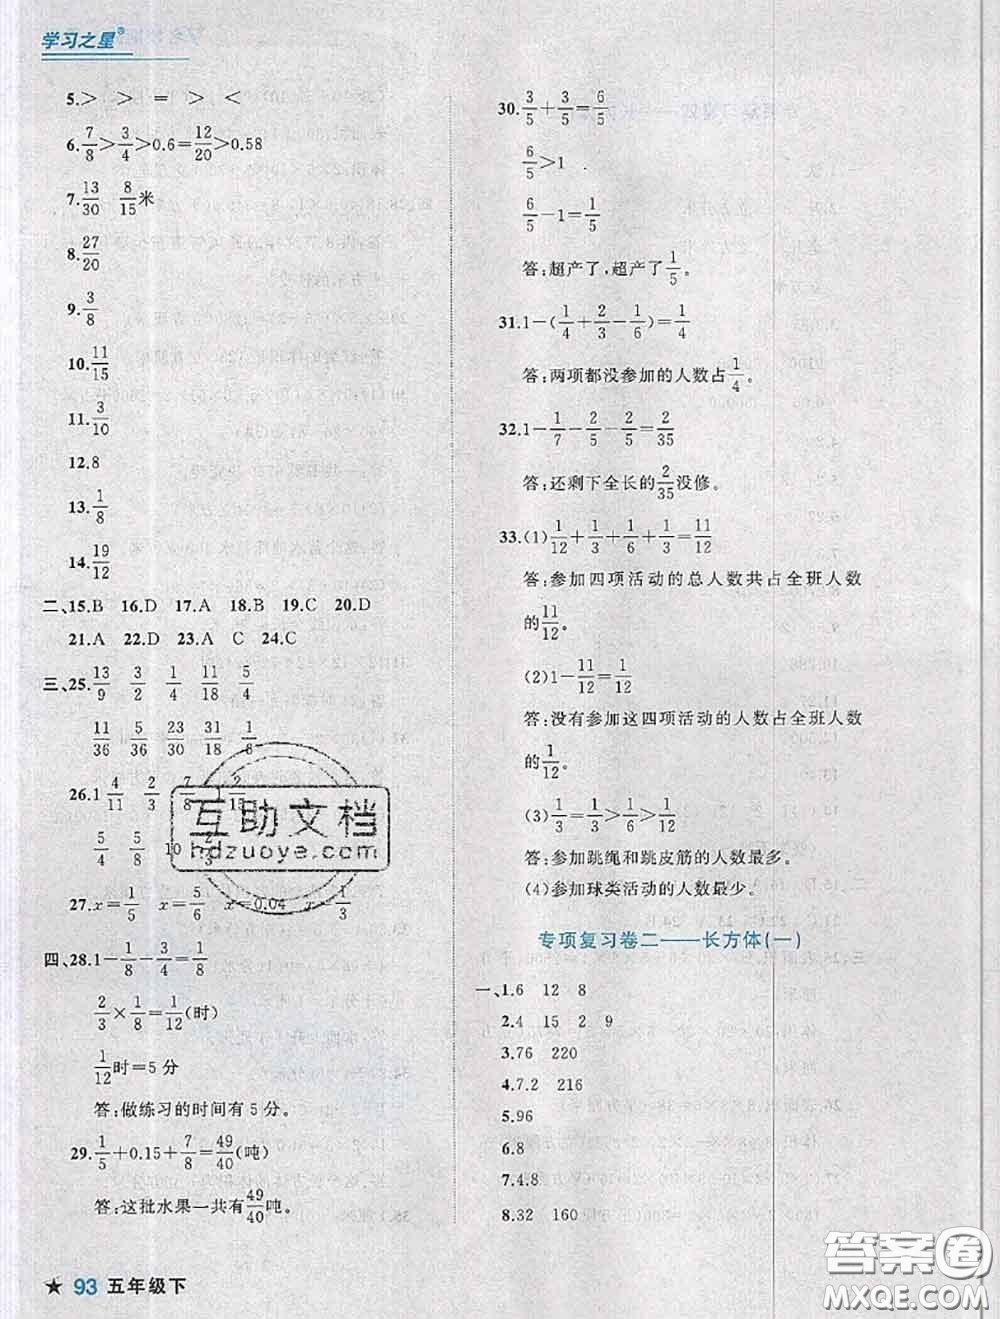 学习之星®
5.＞ ＞ ＝ ＞ ＜
6.7/8＞3/4＞0.6＝12/20＞0.58
7.13/30 8/15米
8.27/20
9.3/8
10.11/15
11.3/10
12.8
13.1/8
14.19/12
二、15.B 16.D 17.A 18.B 19.C 20.D
21.A 22.D 23.A C 24.C
三、25.13/9 3/2 1/4 11/18 5/4
11/36 5/36 23/30 31/18 1/8
26.1 4/11 2/3 7/8 1 2/15
5/4 5/8 10 2/3
27.x＝2/3 x＝5/6 x＝0.04 x＝1/3
四、28.1－1/8－3/4＝1/8
2/3×1/8＝1/12(时)
1/12时＝5分
答:做练习的时间有5分。
29.1/5＋0.15＋7/8＝49/40(吨)
答:这批水果一共有49/40吨。
★ 93 五年级下
30.3/5＋3/5＝6/5
6/5＞1
6/5－1＝1/5
答:超产了,超产了1/5。
31.1－(1/4＋2/3－1/6)＝1/4
答:两项都没参加的人数占1/4。
32.1－1/7－2/5－2/5＝2/35
答:还剩下全长的2/35没修。
33.(1)1/12＋1/3＋1/6＋1/3＝11/12
答:参加四项活动的总人数共占全班人数
的11/12。
(2)1－11/12＝1/12
答:没有参加这四项活动的人数占全班人数
的1/12。
(3)1/3＝1/3＞1/6＞1/12
答:参加跳绳和跳皮筋的人数最多。
(4)参加球类活动的人数最少。
专项复习卷二——长方体(一)
一、1.6 12 8
2.4 15 2 9
3.76 220
4.7.2 216
5.96
6.8
7.4.8
8.32 160
互助文档
hdzuoye.com
答案圈
MXQE.COM